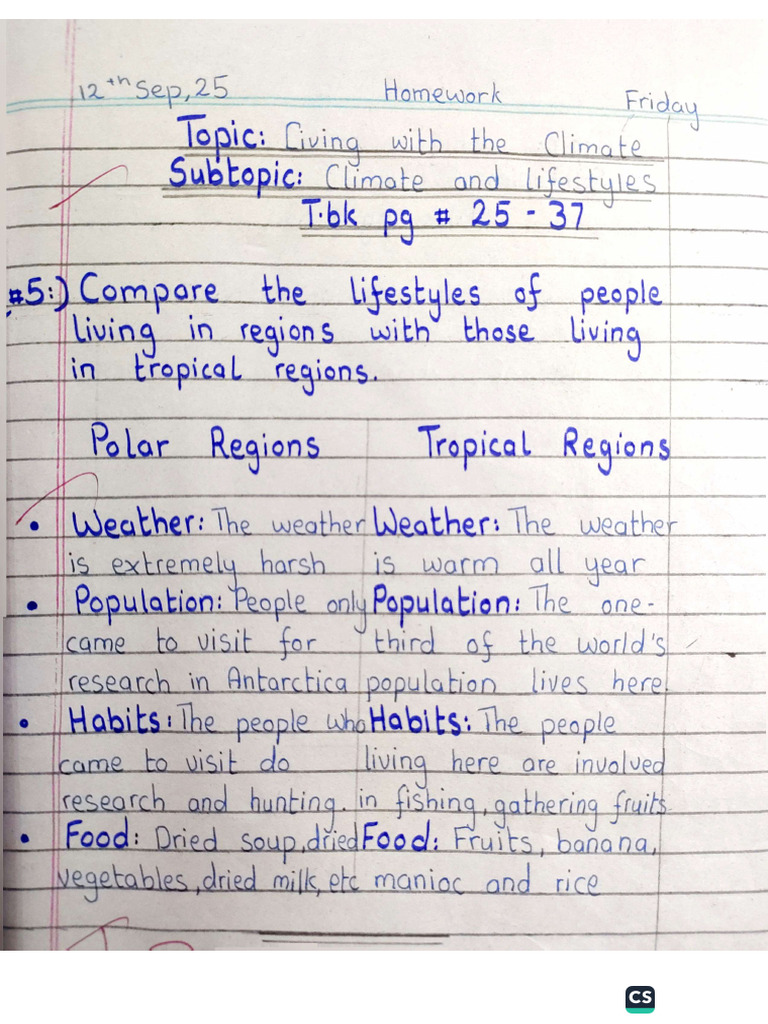 12th Sep, 25 Homework Friday
Topic: Living with the Climate
Subtopic: Climate and lifestyles
T.bk pg # 25 - 37
#5:) Compare the lifestyles of people
living in regions with those living
in tropical regions.
Polar Regions Tropical Regions
• Weather: The weather
is extremely harsh
• Population: People only
came to visit for
research in Antarctica
• Habits: The people who
came to visit do
research and hunting.
• Food: Dried soup, dried
vegetables, dried milk, etc
Weather: The weather
is warm all year
Population: The one-
third of the world's
population lives here.
Habits: The people
living here are involved
in fishing, gathering fruits.
Food: Fruits, banana,
manioc and rice
CS